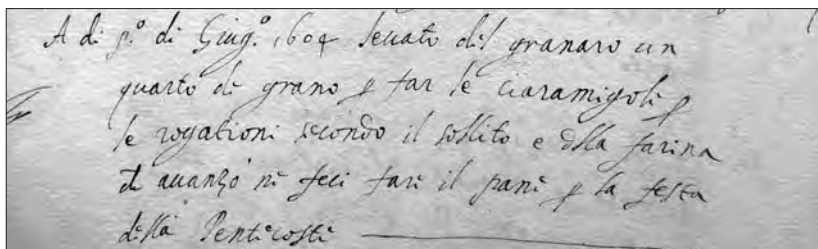 A di p.º di Giug.º 1604 levato del granaro un
quarto de grano p far le ciaramigole p
le rogationi secondo il sollito e della farina
che avanzò ne feci fare il pane p la festa
della Pentecoste